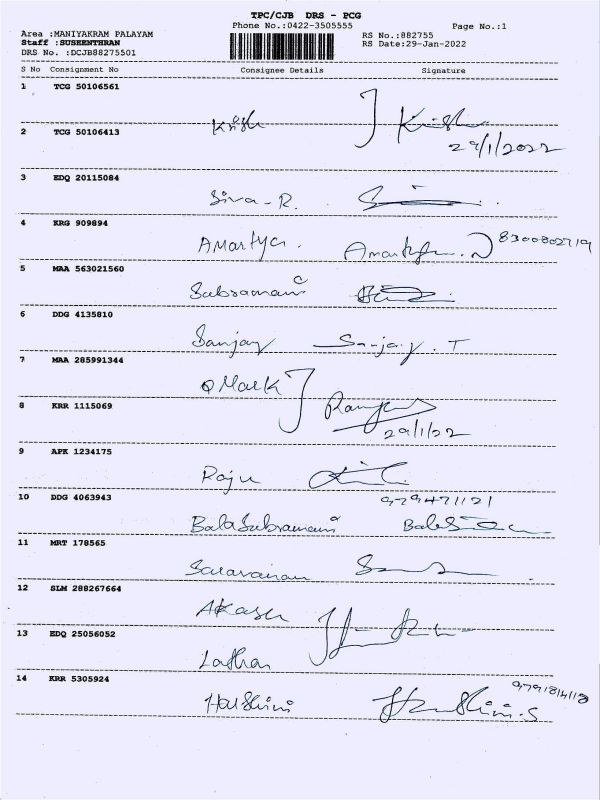 TPC/CJB DRS - PCG
Phone No.:0422-3505555 Page No.:1
Area :MANIYAKRAM PALAYAM RS No.:882755
Staff :SUSEENTHRAN RS Date:29-Jan-2022
DRS No. :DCJB88275501
S No Consignment No Consignee Details Signature
1 TCG 50106561
2 TCG 50106413 Krish Krish
29/1/2022
3 EDQ 20115084
Siva-R.
4 KRG 909894
Amartya. Amartya. 8300802719
5 MAA 563021560
Subramani C
6 DDG 4135810
Sanjay Sanjay. T
7 MAA 285991344
Mark
8 KRR 1115069
29/1/22
9 APK 1234175
Raju
10 DDG 4063943 979471121
Balasubramani
11 MRT 178565
Saravanan
12 SLM 288267664
Akash
13 EDQ 25056052
Lathan
14 KRR 5305924
Harshini Harshini.S